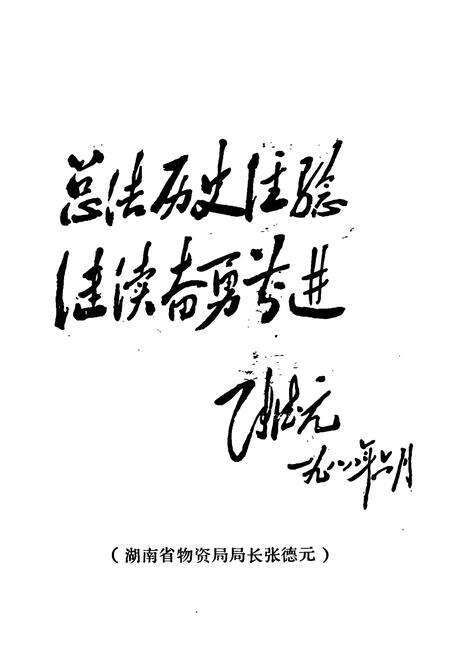 总结历史经验
继续奋勇前进
张德元
一九八八年六月
（湖南省物资局局长张德元）